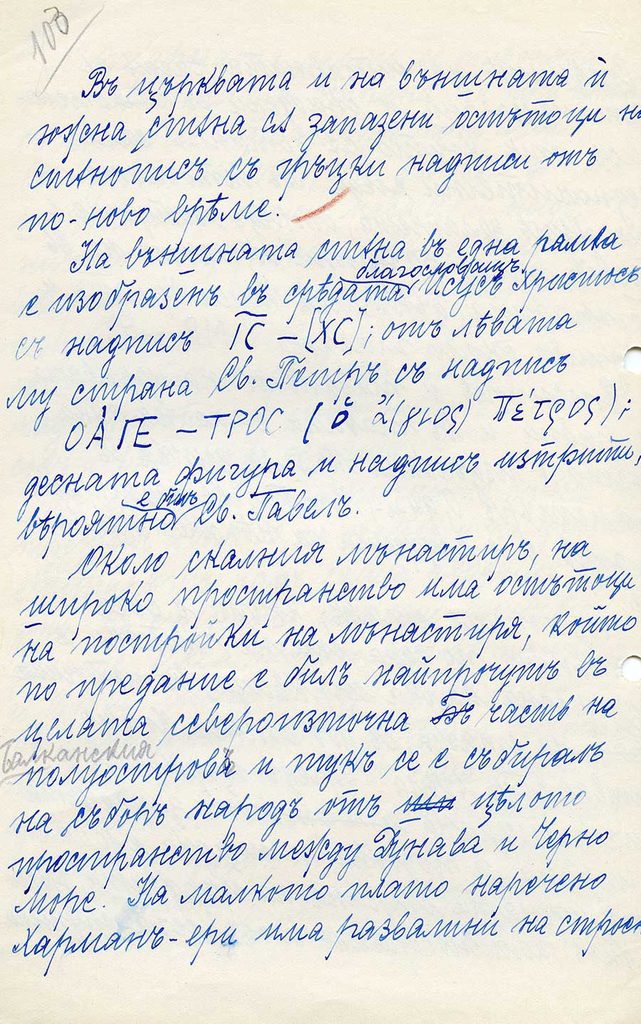 103
Въ църквата и на външната ѝ
южна стѣна сѫ запазени остътоци на
стѣнописъ съ гръцки надписи отъ
по-ново врѣме.
На външната стѣна въ една рамка
благословящъ
е изобразенъ въ срѣдата Исусъ Христосъ
съ надписъ IC – [XC]; отъ лѣвата
му страна Св. Петъръ съ надписъ
ОА̀ ГЕ – ТРОС (ὁ ἅ(γιος) Πέτρος);
десната фигура и надписъ изтрити,
е билъ
вѣроятно Св. Павелъ.
Около скалния мънастиръ, на
широко пространство има остътоци
на постройки на мънастиря, който
по предание е билъ найпрочутъ въ
целата североизточна Бъ часть на
Балкански
полуостровъ и тукъ се е събиралъ
на съборъ народъ отъ цѣлото
пространство между Дунава и Черно
Море. На малкото плато наречено
Харманъ-ери има развалини на строен